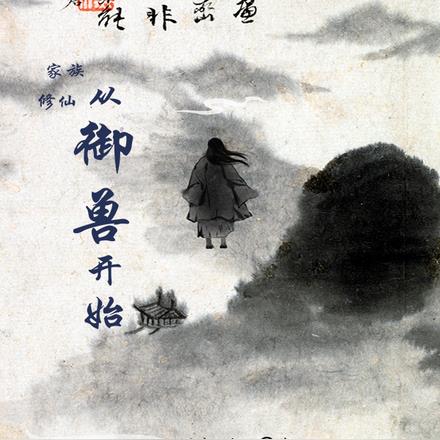 家族
修仙
从御兽开始